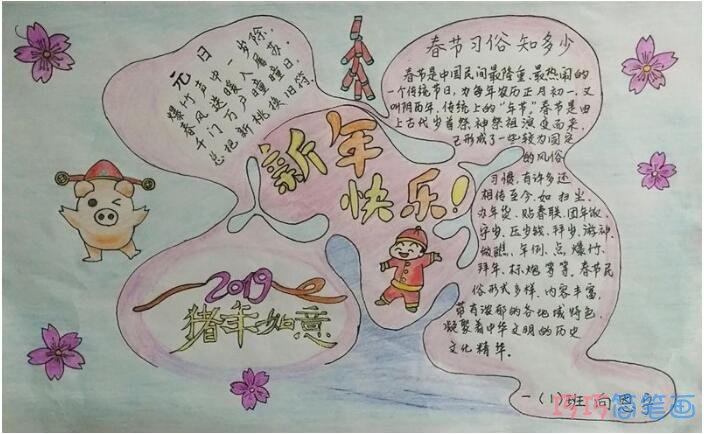 元日
爆竹声中一岁除,
春风送暖入屠苏
千门万户曈曈日,
总把新桃换旧符.
新年
快乐!
2019
猪年如意
春节习俗知多少
春节是中国民间最隆重、最热闹的
一个传统节日,为每年农历正月初一,又
叫阴历年,传统上的“年节”。春节是由
上古代岁首祭神祭祖演变而来,
已形成了一些较为固定
的风俗
习惯,有许多还
相传至今,如扫尘、
办年货、贴春联、团年饭、
守岁、压岁钱、拜岁、游神、
做醮、年例、点爆竹、
拜年、标烟等等,春节民
俗形式多样、内容丰富,
带有浓郁的各地域特色,
凝聚着中华文明的历史
文化精华.
一(1)班 向恩
巧巧简笔画